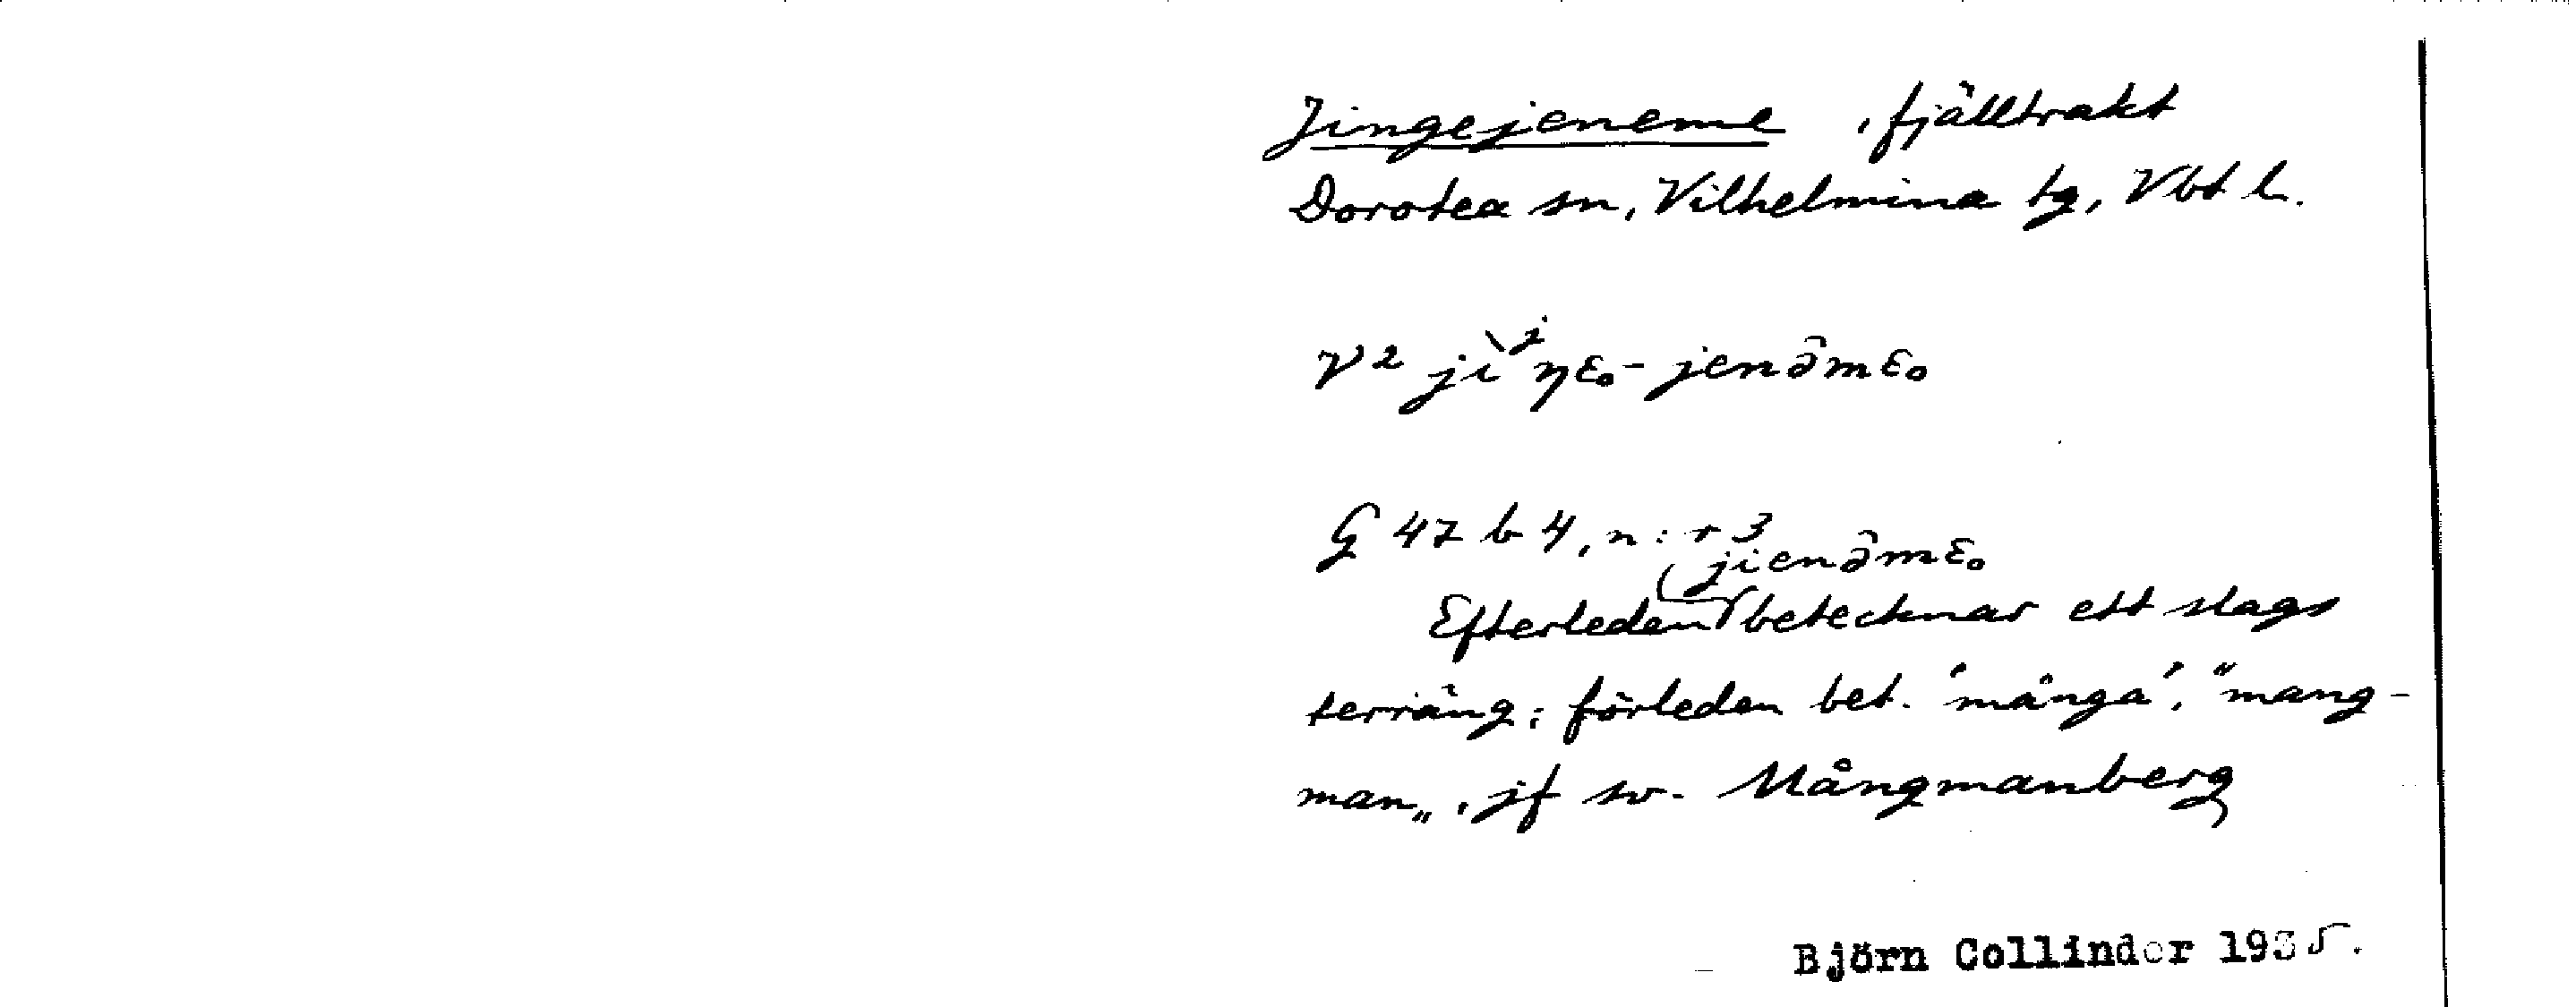 Jingejeneme, fjälltrakt
Dorotea sn, Vilhelmina tg, Vbt l.
V2 jìʲŋɛ˳-jenə̂mɛ˳
G 47 b 4, n:r 3
jienə̂mɛ˳
Efterleden betecknar ett slags
terräng; förleden bet. 'många', "mang-
man„, jf sv. Mångmanberg
Björn Collinder 1935.